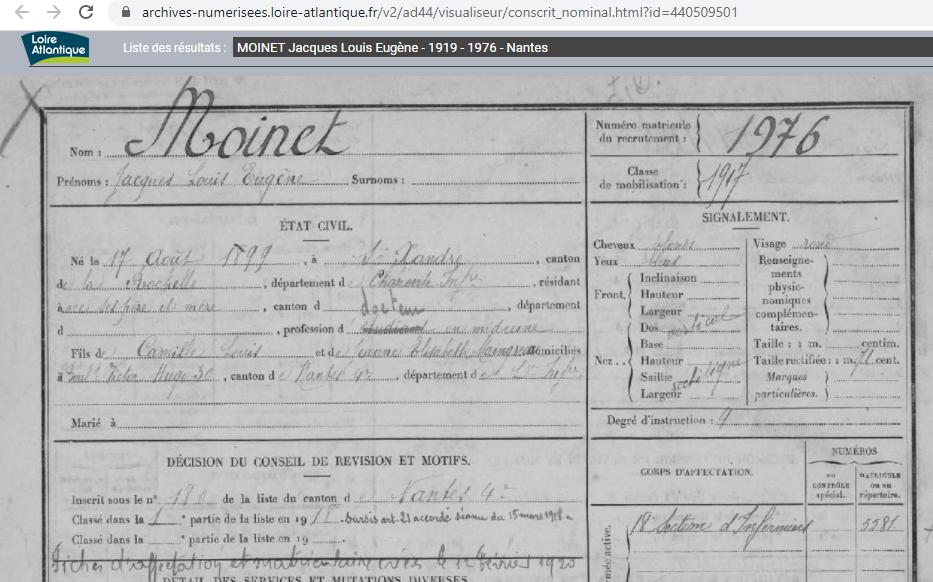 archives-numerisees.loire-atlantique.fr/v2/ad44/visualiseur/conscrit_nominal.html?id=440509501
Loire
Atlantique
Liste des résultats : MOINET Jacques Louis Eugène - 1919 - 1976 - Nantes
Nom : Moinet
Prénoms : Jacques Louis Eugène Surnoms :
Numéro matricule
du recrutement : 1976
Classe
de mobilisation : 1917
ÉTAT CIVIL.
Né le 17 Août 1899, à St Xandre, canton
de la Rochelle, département de Charente Infre, résidant
à avec ses père et mère, canton d , département
d , profession d docteur étudiant en médecine
Fils de Camille Louis et de Jeanne Elisabeth domiciliés
à Boul. Victor Hugo 30, canton de Nantes 4e, département de Lre Infre
Marié à
SIGNALEMENT.
Cheveux blonds
Yeux bleus
Front. Inclinaison
Hauteur
Largeur
Nez. Dos vertical
Base
Hauteur
Saillie
Largeur
Visage rond
Renseigne-
ments
physio-
nomiques
complémen-
taires.
Taille : 1 m. centim.
Taille rectifiée : 1 m. 71 cent.
Marques
particulières.
Degré d'instruction :
DÉCISION DU CONSEIL DE REVISION ET MOTIFS.
Inscrit sous le n° 180 de la liste du canton de Nantes 4e
Classé dans la 1e partie de la liste en 1918. Sursis art. 21 accordé séance du 15 mars 1918.
Classé dans la e partie de la liste en 19
Fiches d'affectation et matriculaire le 12 février 1920
DÉTAIL DES SERVICES ET MUTATIONS DIVERSES
CORPS D'AFFECTATION.
NUMÉROS
AU
CONTRÔLE
spécial.
MATRICULE
OU AU
répertoire.
Section d'Infirmiers 5381
Armée active.